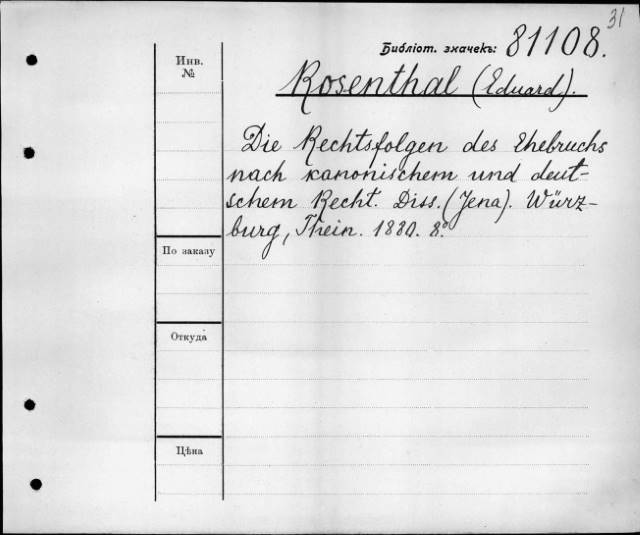 31
Библіот. значекъ: 81108.
Инв.
№
Rosenthal (Eduard).
Die Rechtsfolgen des Ehebruchs
nach kanonischem und deut-
schem Recht. Diss. (Jena). Würz-
burg, Thein. 1880. 8.°
По заказу
Откуда
Цѣна